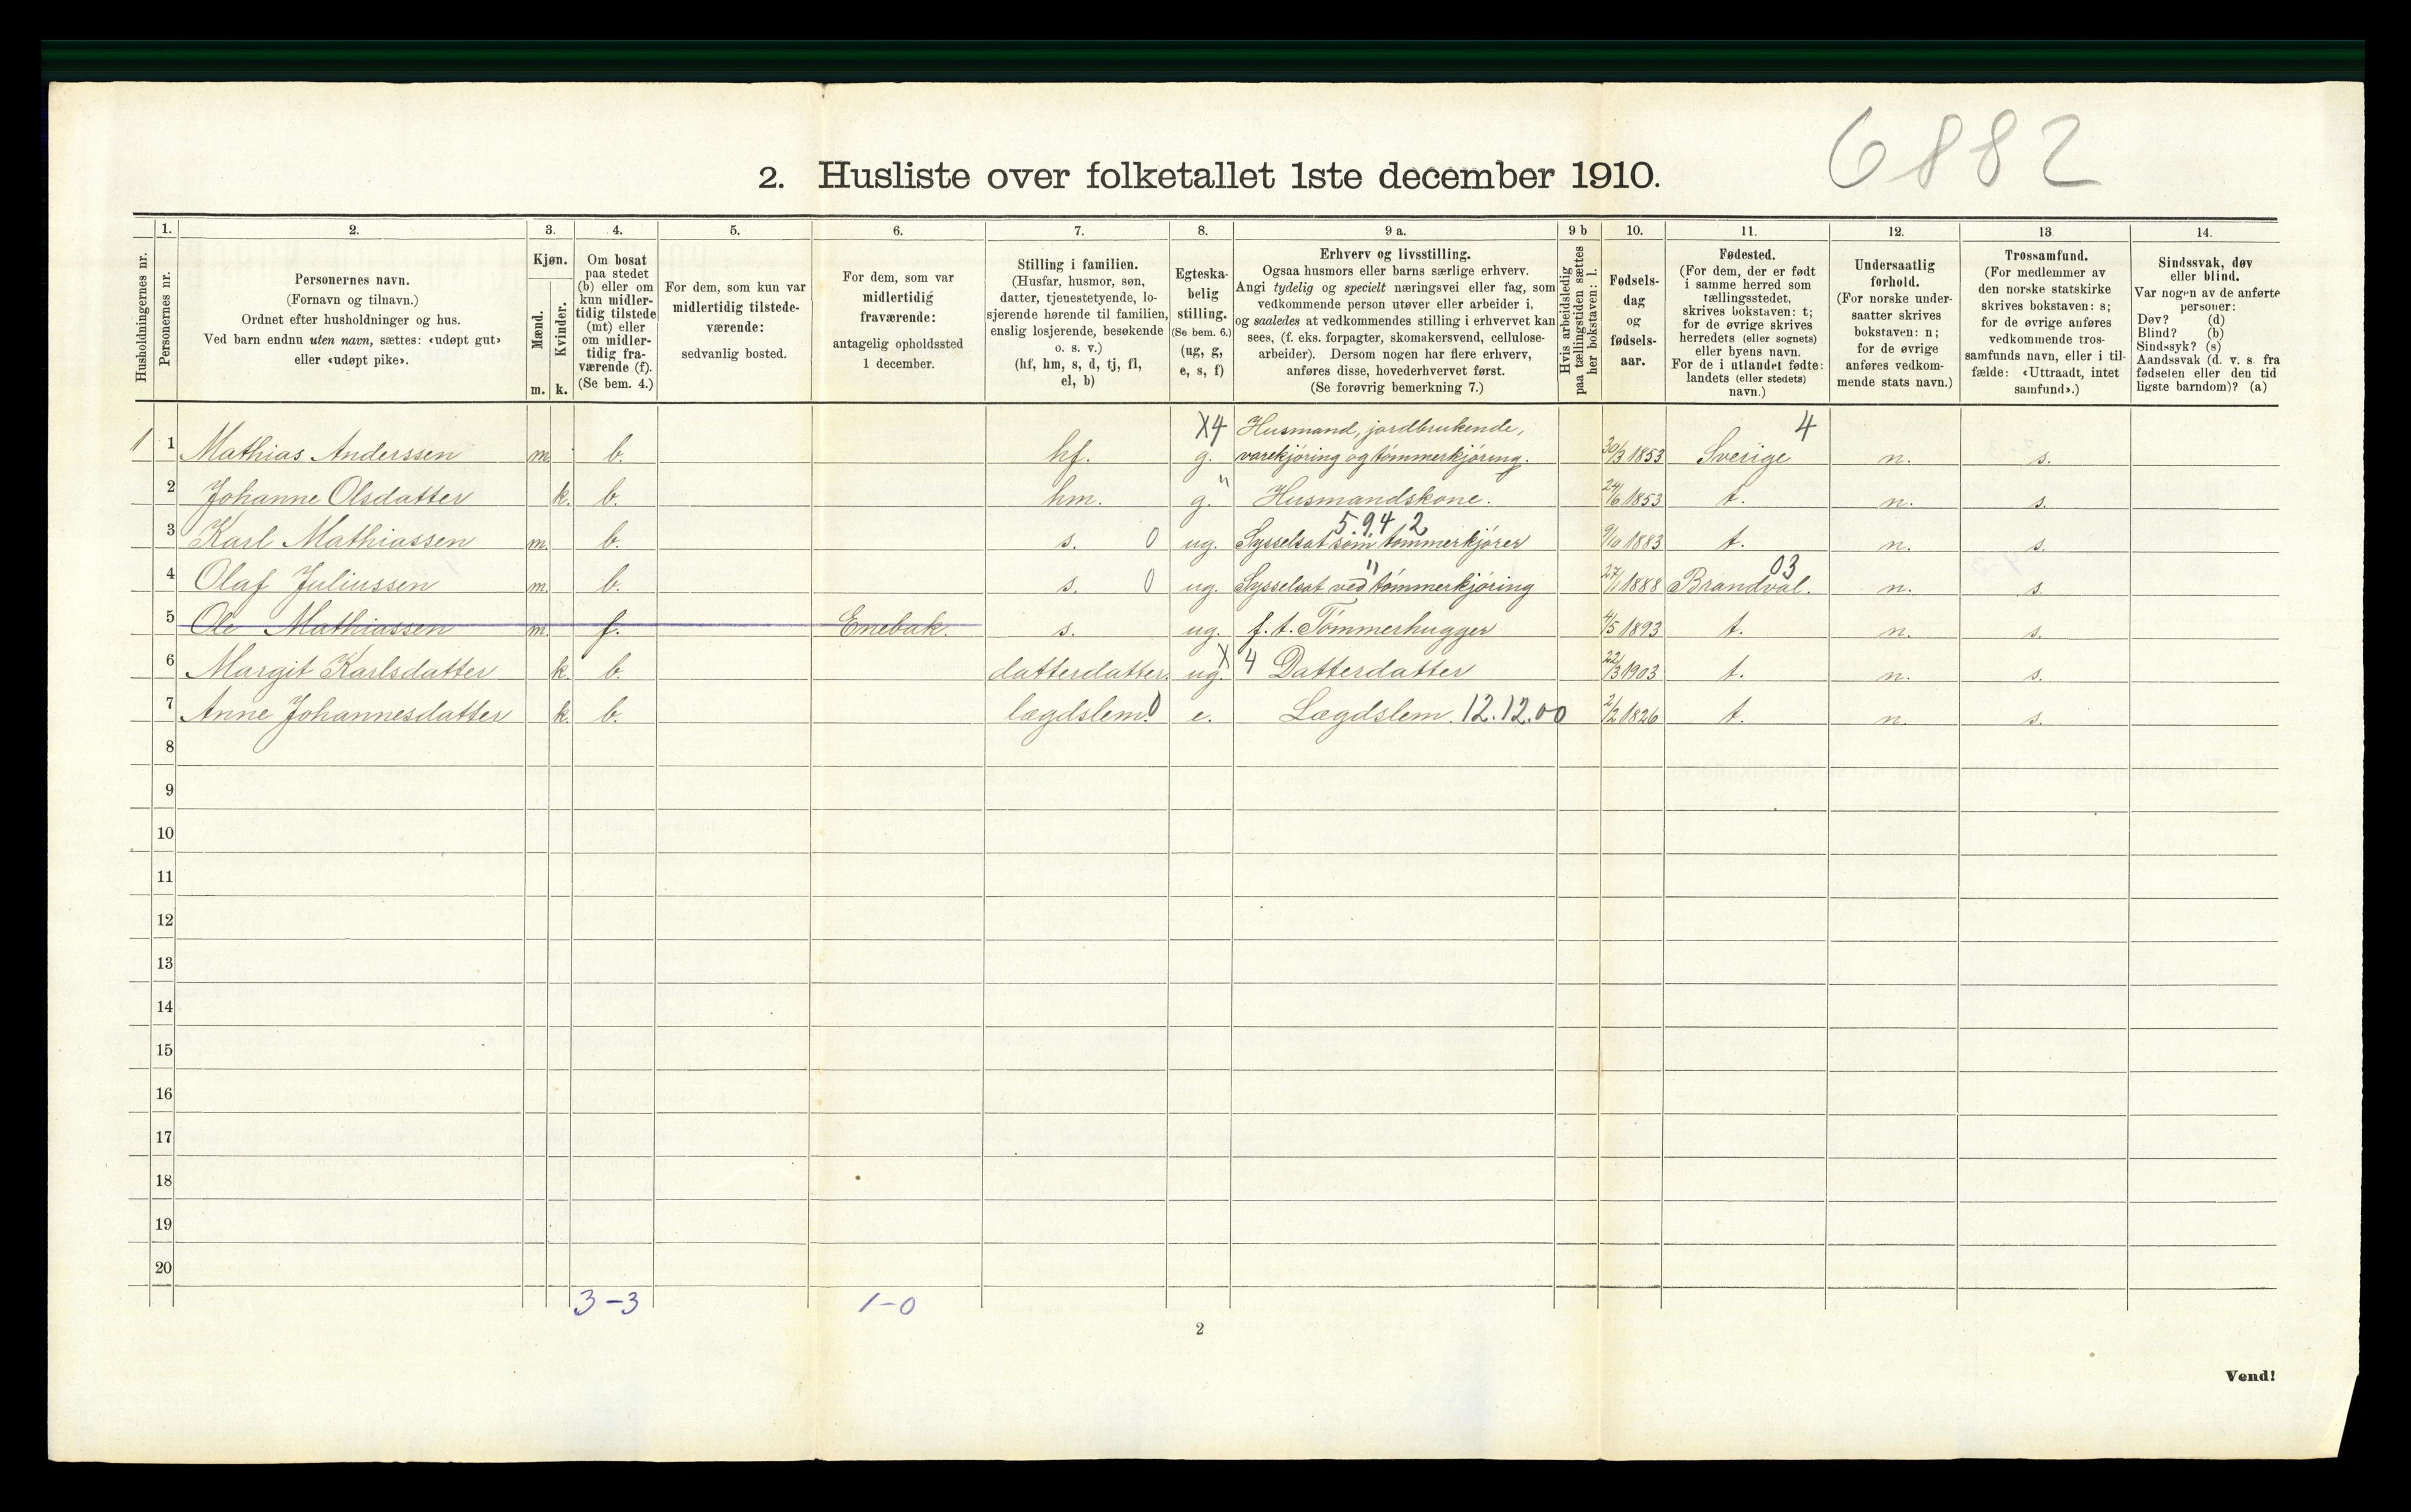 6882
2. Husliste over folketallet 1ste december 1910.
Husholdningernes nr.
1.
Personernes nr.
2.
Personernes navn.
(Fornavn og tilnavn.)
Ordnet efter husholdninger og hus.
Ved barn endnu uten navn, sættes: «udøpt gut»
eller «udøpt pike».
3.
Kjøn.
Mænd.
Kvinder.
m. k.
4.
Om bosat
paa stedet
(b) eller om
kun midler-
tidig tilstede
(mt) eller
om midler-
tidig fra-
værende (f).
(Se bem. 4.)
5.
For dem, som kun var
midlertidig tilstede-
værende:
sedvanlig bosted.
6.
For dem, som var
midlertidig
fraværende:
antagelig opholdssted
1 december.
7.
Stilling i familien.
(Husfar, husmor, søn,
datter, tjenestetyende, lo-
sjerende hørende til familien,
enslig losjerende, besøkende
o. s. v.)
(hf, hm, s, d, tj, fl,
el, b)
8.
Egteska-
belig
stilling.
(Se bem. 6.)
(ug, g,
e, s, f)
9 a.
Erhverv og livsstilling.
Ogsaa husmors eller barns særlige erhverv.
Angi tydelig og specielt næringsvei eller fag, som
vedkommende person utøver eller arbeider i,
og saaledes at vedkommendes stilling i erhvervet kan
sees, (f. eks. forpagter, skomakersvend, cellulose-
arbeider). Dersom nogen har flere erhverv,
anføres disse, hovederhvervet først.
(Se forøvrig bemerkning 7.)
9 b
Hvis arbeidsledig
paa tællingstiden sættes
her bokstaven: l.
10.
Fødsels-
dag
og
fødsels-
aar.
11.
Fødested.
(For dem, der er født
i samme herred som
tællingsstedet,
skrives bokstaven: t;
for de øvrige skrives
herredets (eller sognets)
eller byens navn.
For de i utlandet fødte:
landets (eller stedets)
navn.)
12.
Undersaatlig
forhold.
(For norske under-
saatter skrives
bokstaven: n;
for de øvrige
anføres vedkom-
mende stats navn.)
13.
Trossamfund.
(For medlemmer av
den norske statskirke
skrives bokstaven: s;
for de øvrige anføres
vedkommende tros-
samfunds navn, eller i til-
fælde: «Uttraadt, intet
samfund».)
14.
Sindssvak, døv
eller blind.
Var nogen av de anførte
personer:
Døv? (d)
Blind? (b)
Sindssyk? (s)
Aandssvak (d. v. s. fra
fødselen eller den tid
ligste barndom)? (a)
X4 Husmand, jordbrukende, 4
1 1 Mathias Anderssen m. b. hf. g. varekjøring og tømmerkjøring. 30/3 1853 Sverige n. s.
2 Johanne Olsdatter k. b. hm. g. " Husmandskone. 24/6 1853 t. n. s.
5.94 2
3 Karl Mathiassen m. b. s. 0 ug. Sysselsat som tømmerkjører 1883 t. n. s.
" 03
4 Olaf Juliussen m. b. s. 0 ug. Sysselsat ved tømmerkjøring 27/1 1888 Brandval. n. s.
5 Ole Mathiassen m. f. Enebak. s. ug. f. t. Tømmerhugger 4/5 1893 t. n. s.
6 Margit Karlsdatter k. b. datterdatter. ug. X 4 Datterdatter 22/3 1903 t. n. s.
7 Anne Johannesdatter k. b. lægdslem. 0 e. Lægdslem. 12.12.00 2/2 1826 t. n. s.
8
9
10
11
12
13
14
15
16
17
18
19
20
3-3 1-0
2
Vend!